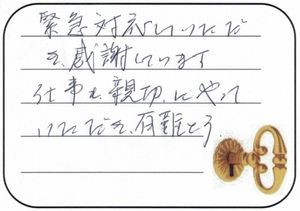 緊急対応していただ
き、感謝しています
仕事も、親切にやって
いただき、有難とう。